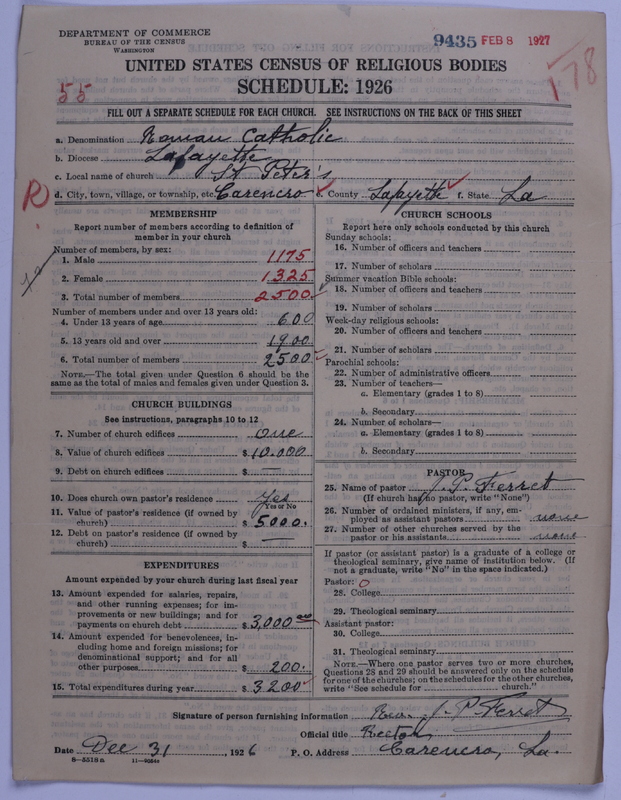 DEPARTMENT OF COMMERCE
BUREAU OF THE CENSUS
WASHINGTON
9435 FEB 8 1927
178
UNITED STATES CENSUS OF RELIGIOUS BODIES
SCHEDULE: 1926
55
FILL OUT A SEPARATE SCHEDULE FOR EACH CHURCH. SEE INSTRUCTIONS ON THE BACK OF THIS SHEET
a. Denomination Roman Catholic
b. Diocese Lafayette
c. Local name of church St Peter's
R
d. City, town, village, or township, etc. Carencro e. County Lafayette f. State La
MEMBERSHIP
Report number of members according to definition of
member in your church
Number of members, by sex:
1. Male 1175
2. Female 1325
3. Total number of members 2500
Number of members under and over 13 years old:
4. Under 13 years of age 600
5. 13 years old and over 1900
6. Total number of members 2500
NOTE.—The total given under Question 6 should be the
same as the total of males and females given under Question 3.
CHURCH BUILDINGS
See instructions, paragraphs 10 to 12
7. Number of church edifices One
8. Value of church edifices $10.000
9. Debt on church edifices $ —
10. Does church own pastor's residence Yes
Yes or No
11. Value of pastor's residence (if owned by
church) $5000.
12. Debt on pastor's residence (if owned by
church) $ —
EXPENDITURES
Amount expended by your church during last fiscal year
13. Amount expended for salaries, repairs,
and other running expenses; for im-
provements or new buildings; and for
payments on church debt $3,000
14. Amount expended for benevolences, in-
cluding home and foreign missions; for
denominational support; and for all
other purposes $200.
15. Total expenditures during year $3200
CHURCH SCHOOLS
Report here only schools conducted by this church
Sunday schools:
16. Number of officers and teachers
17. Number of scholars
Summer vacation Bible schools:
18. Number of officers and teachers
19. Number of scholars
Week-day religious schools:
20. Number of officers and teachers
21. Number of scholars
Parochial schools:
22. Number of administrative officers
23. Number of teachers—
a. Elementary (grades 1 to 8)
b. Secondary
24. Number of scholars—
a. Elementary (grades 1 to 8)
b. Secondary
PASTOR
25. Name of pastor J. P. Ferret
(If church has no pastor, write "None")
26. Number of ordained ministers, if any, em-
ployed as assistant pastors none
27. Number of other churches served by the
pastor or his assistants none
If pastor (or assistant pastor) is a graduate of a college or
theological seminary, give name of institution below. (If
not a graduate, write "No" in the space indicated.)
Pastor: O
28. College
29. Theological seminary
Assistant pastor:
30. College
31. Theological seminary
NOTE.—Where one pastor serves two or more churches,
Questions 28 and 29 should be answered only on the schedule
for one of the churches; on the schedules for the other churches,
write "See schedule for church."
Signature of person furnishing information Rev. J. P. Ferret
Official title Rector
Date Dec 31 1926 P. O. Address Carencro, La.
8—5518a